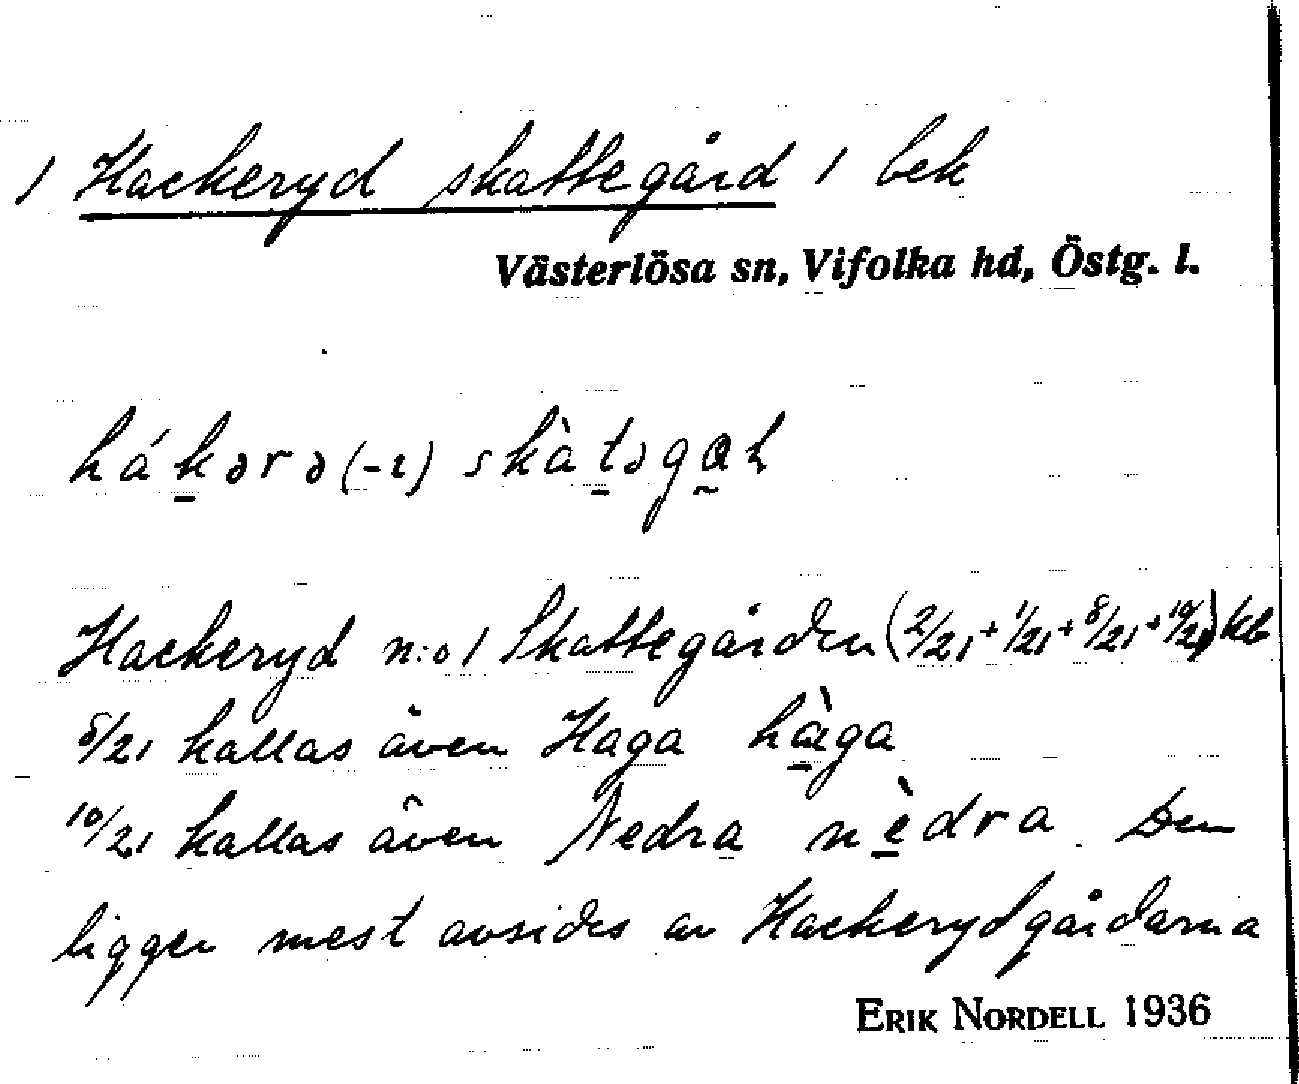 / Hackeryd skattegård / bek
Västerlösa sn, Vifolka hd, Östg. l.
hákərə(-ɪ) skàtəgɑh
Hackeryd n:o 1 Skattegården (2/21+1/21+8/21+10/21) kb
8/21 kallas även Haga hàga
10/21 kallas även Nedra nèdra Den
ligger mest avsides av Hackerydgårdarna
ERIK NORDELL 1936